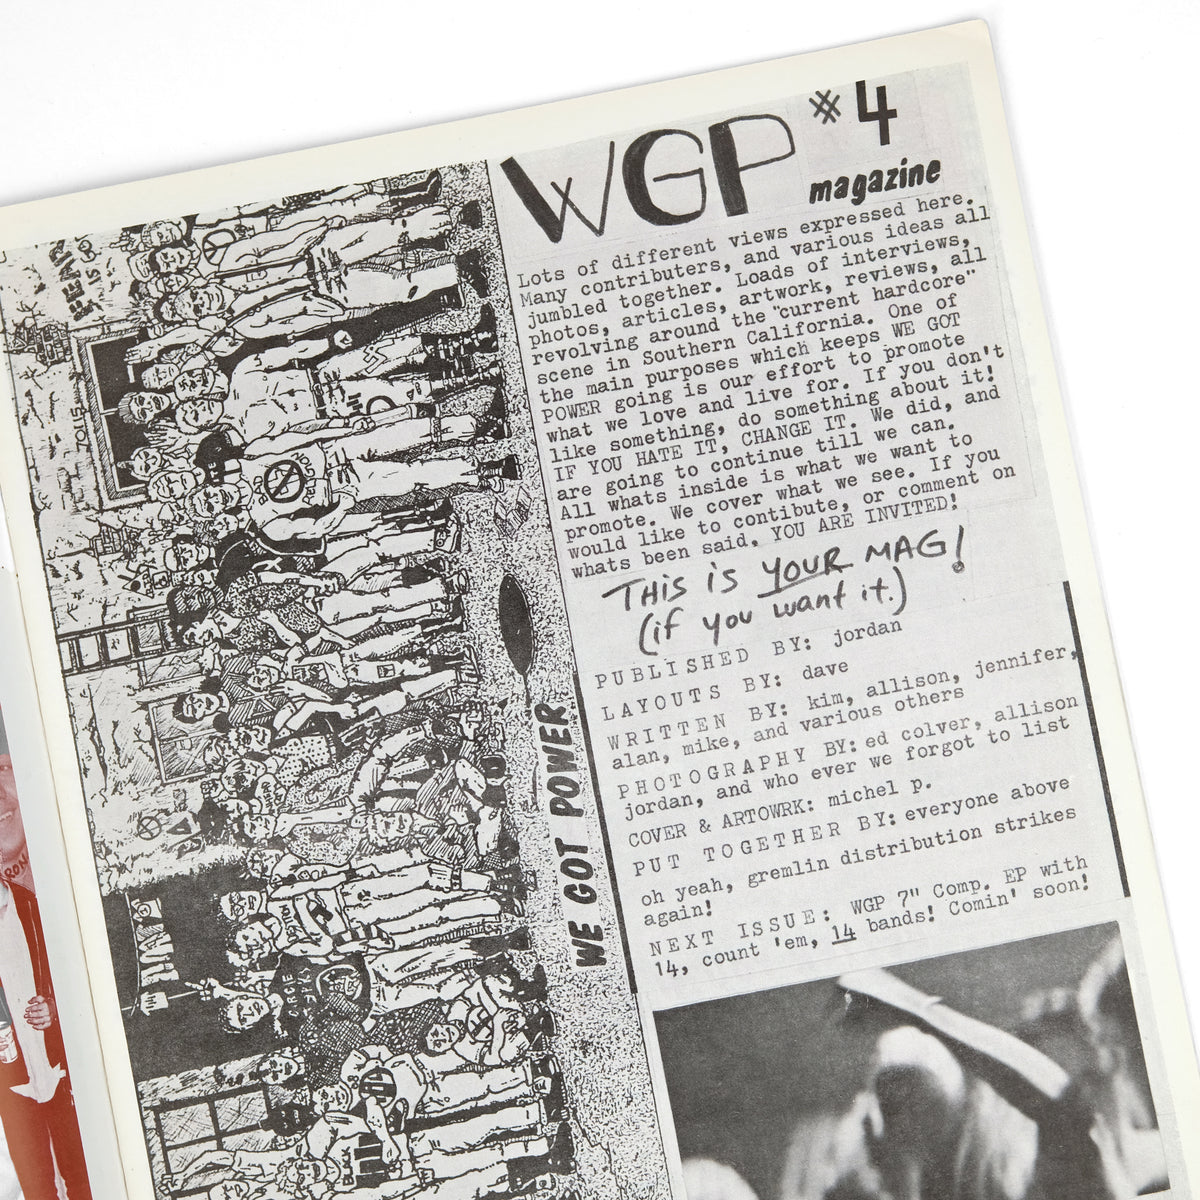 WGP #4
magazine
Lots of different views expressed here.
Many contributers, and various ideas all
jumbled together. Loads of interviews,
photos, articles, artwork, reviews, all
revolving around the "current hardcore"
scene in Southern California. One of
the main purposes which keeps WE GOT
POWER going is our effort to promote
what we love and live for. If you don't
like something, do something about it!
IF YOU HATE IT, CHANGE IT. We did, and
are going to continue till we can.
All whats inside is what we want to
promote. We cover what we see. If you
would like to contibute, or comment on
whats been said, YOU ARE INVITED!
THIS is YOUR MAG!
(if you want it.)
PUBLISHED BY: jordan
LAYOUTS BY: dave
WRITTEN BY: kim, allison, jennifer,
alan, mike, and various others
PHOTOGRAPHY BY: ed colver, allison
jordan, and who ever we forgot to list
COVER & ARTOWRK: michel p.
PUT TOGETHER BY: everyone above
oh yeah, gremlin distribution strikes
again!
NEXT ISSUE: WGP 7" Comp. EP with
14, count 'em, 14 bands! Comin' soon!
WE GOT POWER